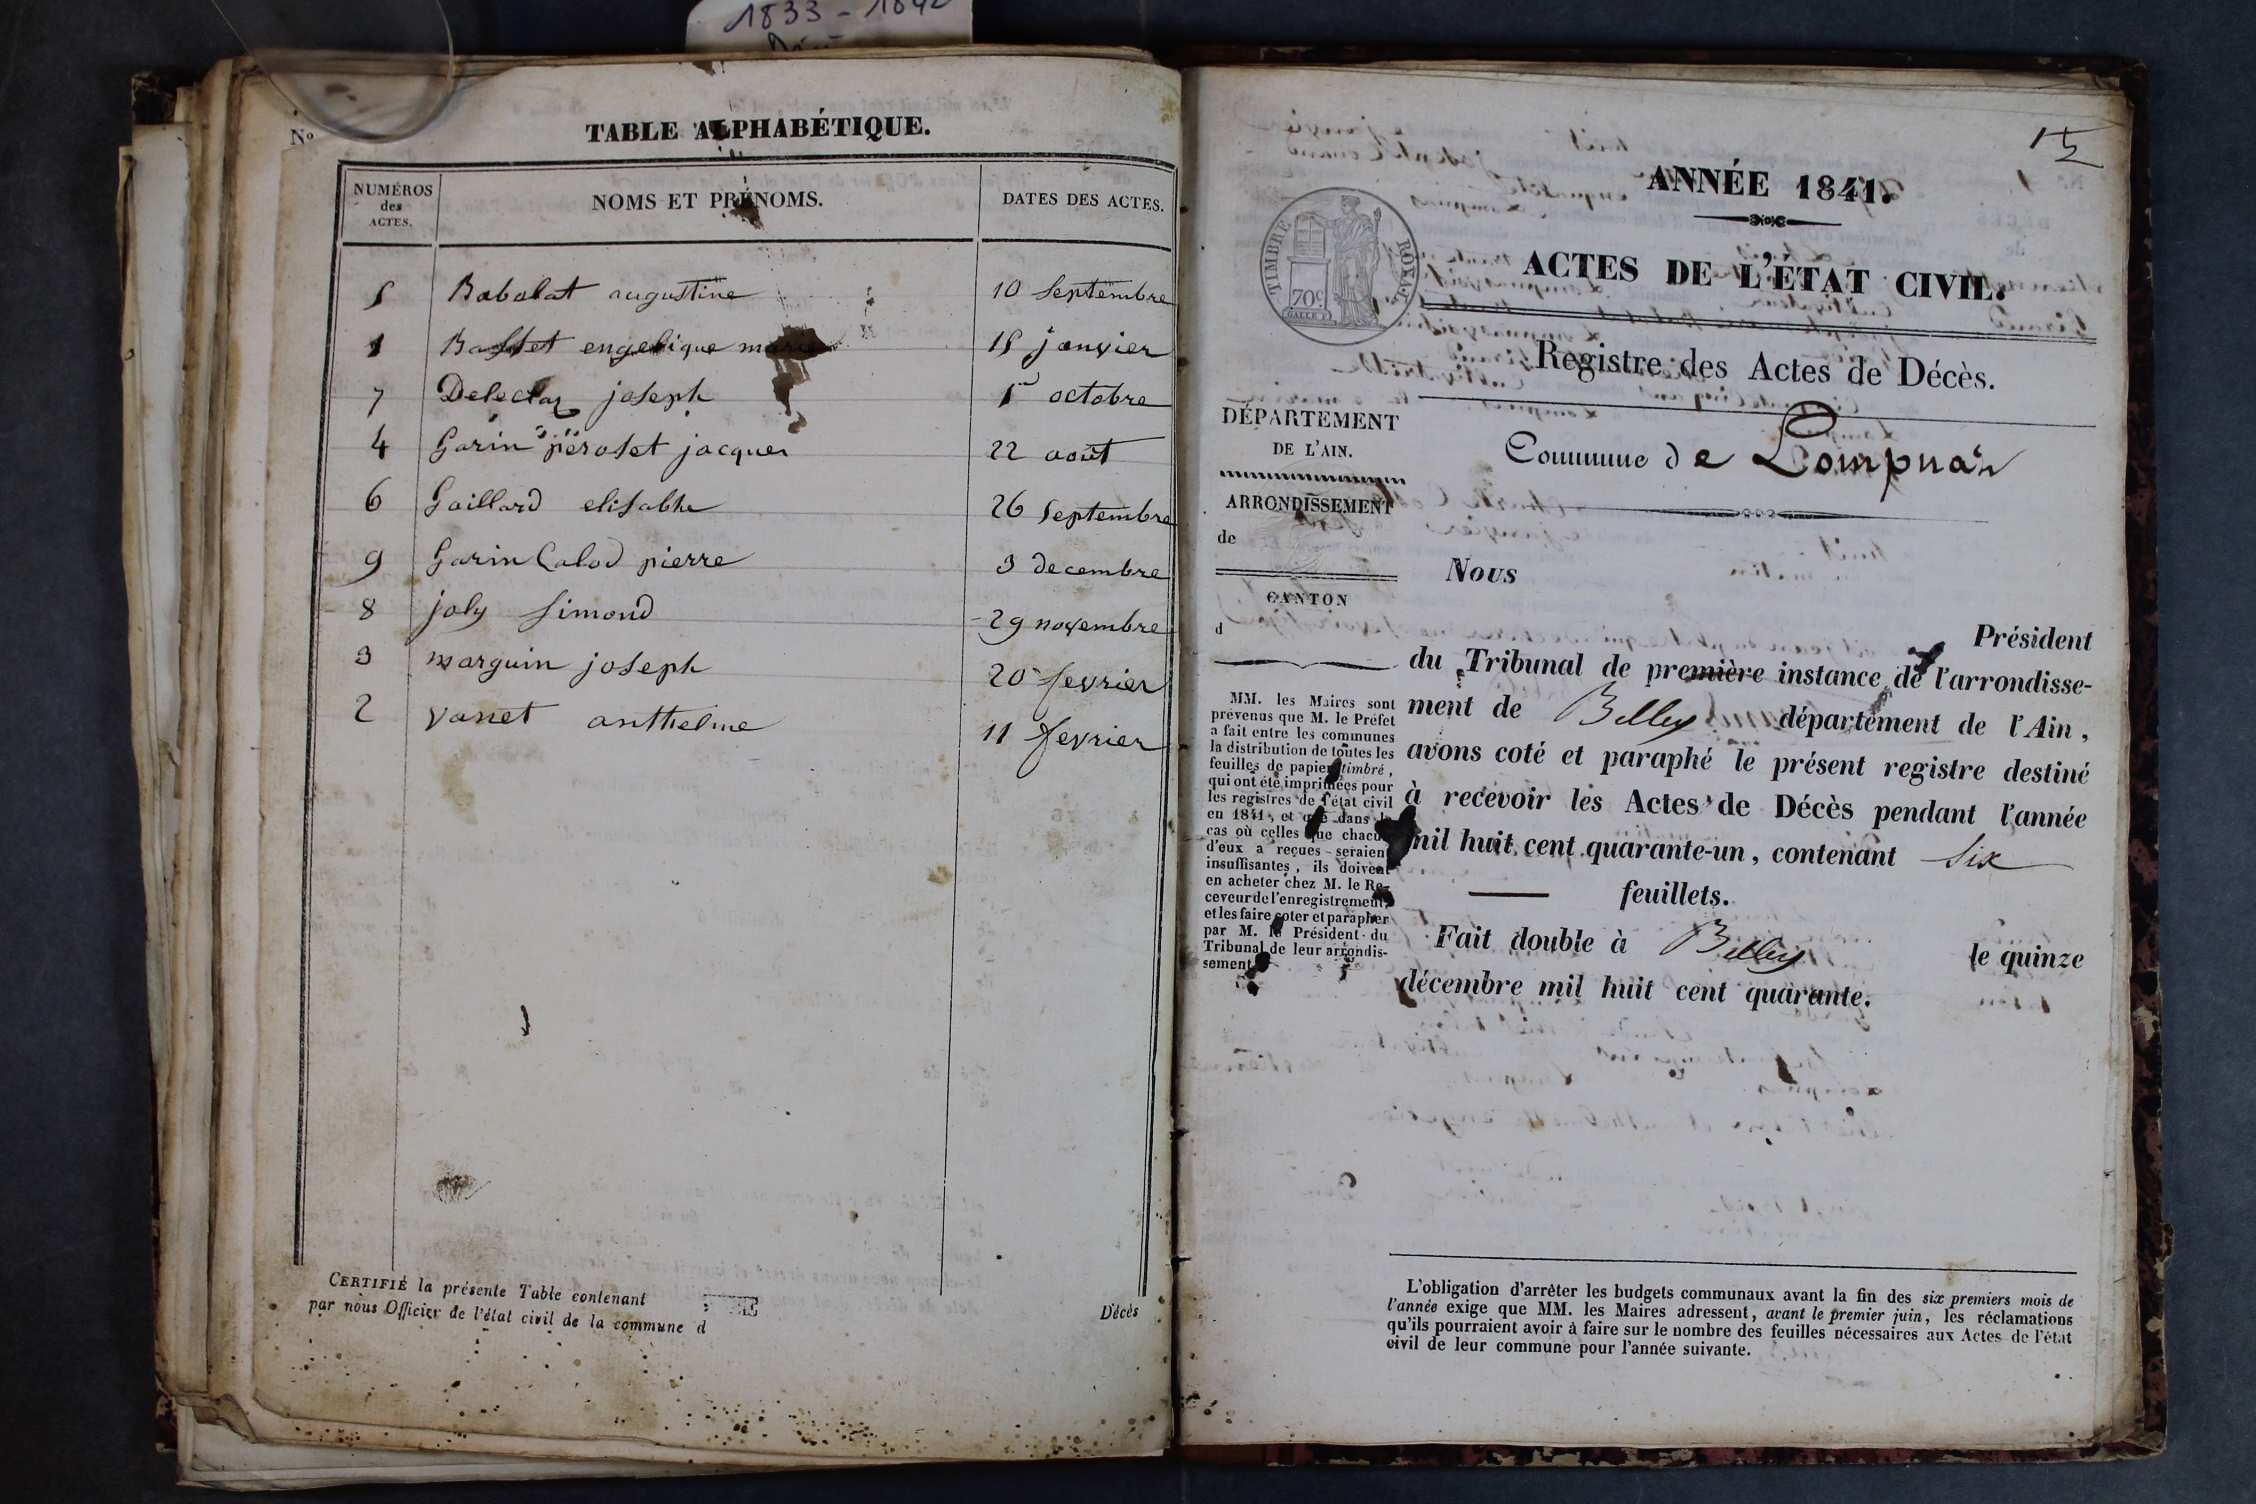 1833 - 1842
Nº
TABLE ALPHABÉTIQUE.
NUMÉROS des ACTES.
NOMS ET PRÉNOMS.
DATES DES ACTES.
5 Babolat augustine 10 Septembre
1 Basset engelique marie 15 janvier
7 joseph 1er octobre
4 Garin perosset jacques 22 août
6 Gaillard elisabhe 26 Septembre
9 Garin Calod pierre 3 decembre
8 joly Simond 29 novembre
3 marguin joseph 20 fevrier
2 vanet anthelme 11 fevrier
CERTIFIÉ la présente Table contenant
par nous Officier de l'état civil de la commune d
Décès
ANNÉE 1841.
TIMBRE ROYAL
70c
ACTES DE L'ÉTAT CIVIL.
Registre des Actes de Décès.
DÉPARTEMENT
DE L'AIN.
ARRONDISSEMENT
de
CANTON
d
MM. les Maires sont
prévenus que M. le Préfet
a fait entre les communes
la distribution de toutes les
feuilles de papier timbré,
qui ont été imprimées pour
les registres de l'état civil
en 1841, et que dans le
cas où celles que chacun
d'eux a reçues seraient
insuffisantes, ils doivent
en acheter chez M. le Re-
ceveur de l'enregistrement,
et les faire coter et parapher
par M. le Président du
Tribunal de leur arrondis-
sement.
Commune de Lompnas
Nous
Président
du Tribunal de première instance de l'arrondisse-
ment de Belley département de l'Ain,
avons coté et paraphé le présent registre destiné
à recevoir les Actes de Décès pendant l'année
mil huit cent quarante-un, contenant Six
feuillets.
Fait double à Belley le quinze
décembre mil huit cent quarante.
L'obligation d'arrêter les budgets communaux avant la fin des six premiers mois de
l'année exige que MM. les Maires adressent, avant le premier juin, les réclamations
qu'ils pourraient avoir à faire sur le nombre des feuilles nécessaires aux Actes de l'état
civil de leur commune pour l'année suivante.